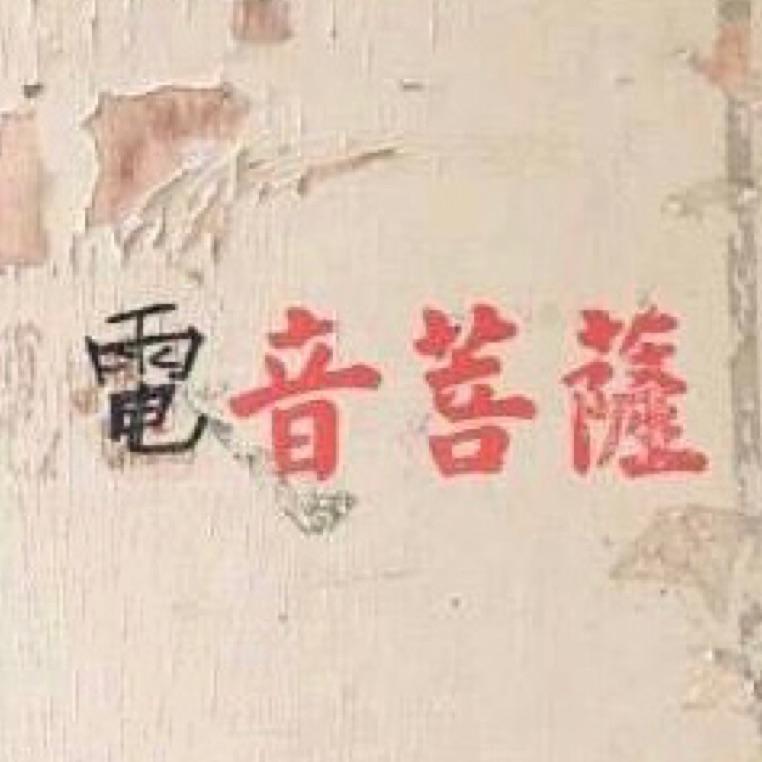 電音菩薩